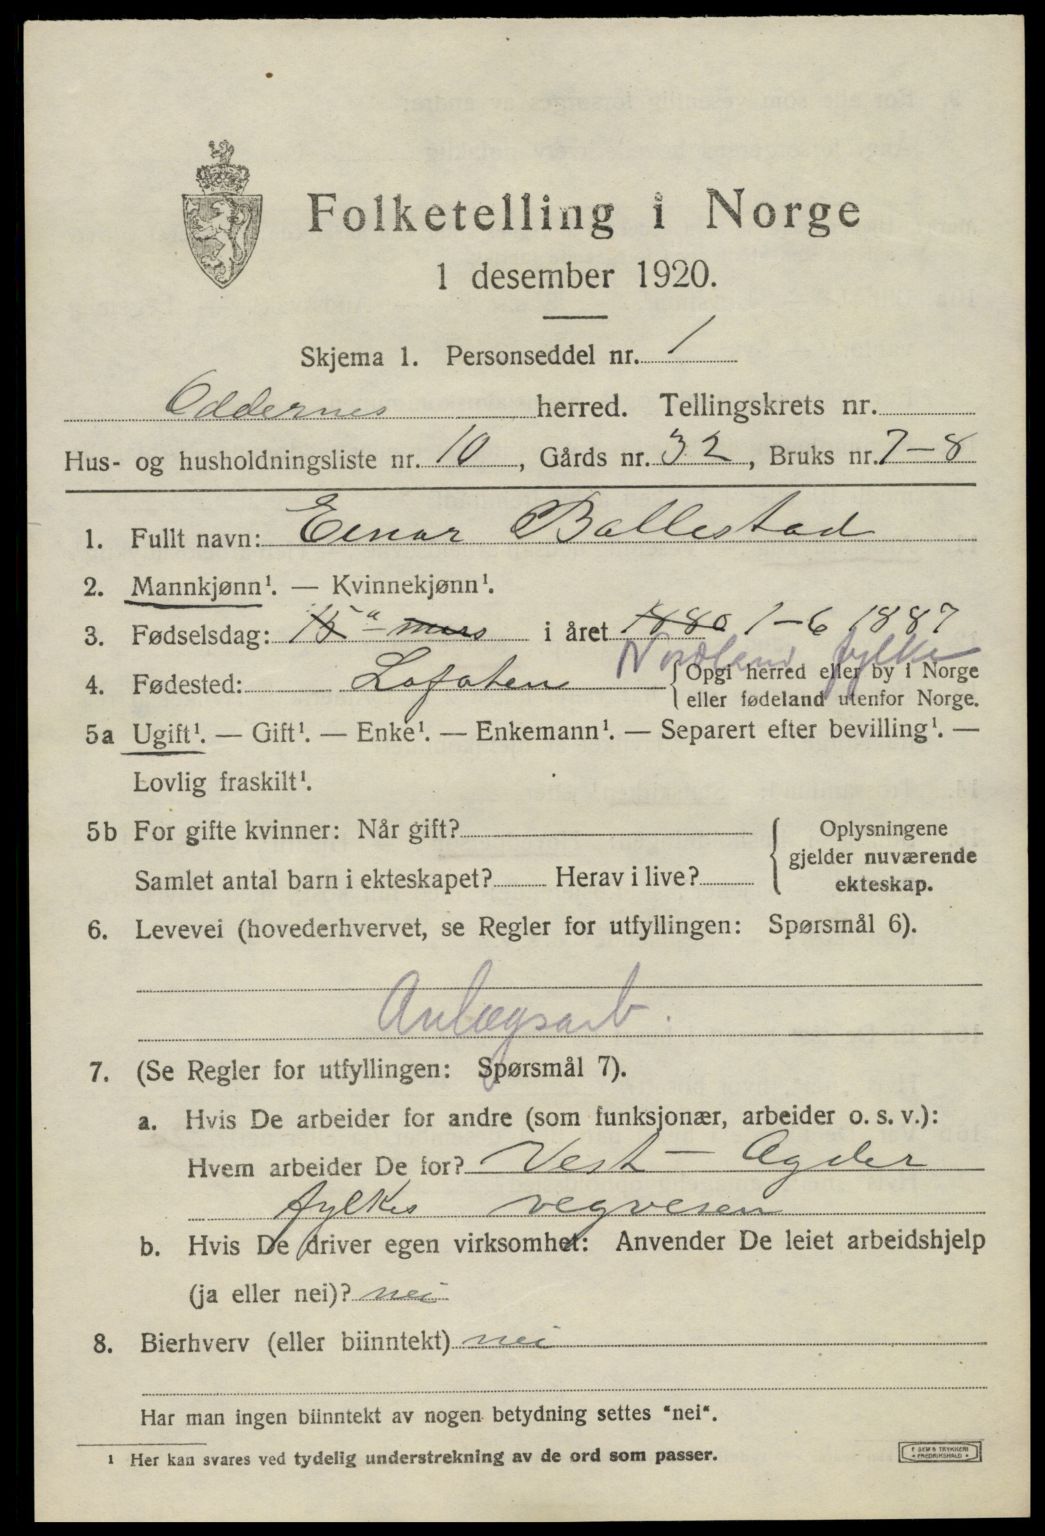 Folketelling i Norge
1 desember 1920.
Skjema 1. Personseddel nr. 1
Oddernes herred. Tellingskrets nr.
Hus- og husholdningsliste nr. 10, Gårds nr. 32, Bruks nr. 7-8
1. Fullt navn: Einar Ballestad
2. Mannkjønn¹. — Kvinnekjønn¹.
3. Fødselsdag: 15 mars i året 1880 1-6 1887
Nordland fylke
4. Fødested: Lofoten Opgi herred eller by i Norge
eller fødeland utenfor Norge.
5a Ugift¹. — Gift¹. — Enke¹. — Enkemann¹. — Separert efter bevilling¹. —
Lovlig fraskilt¹.
5b For gifte kvinner: Når gift?
Samlet antal barn i ekteskapet? Herav i live?
Oplysningene
gjelder nuværende
ekteskap.
6. Levevei (hovederhvervet, se Regler for utfyllingen: Spørsmål 6).
Anlægsarb.
7. (Se Regler for utfyllingen: Spørsmål 7).
a. Hvis De arbeider for andre (som funksjonær, arbeider o. s. v.):
Hvem arbeider De for? Vest-Agder
fylkes vegvesen
b. Hvis De driver egen virksomhet: Anvender De leiet arbeidshjelp
(ja eller nei)? nei
8. Bierhverv (eller biinntekt) nei
Har man ingen biinntekt av nogen betydning settes "nei".
¹ Her kan svares ved tydelig understrekning av de ord som passer.